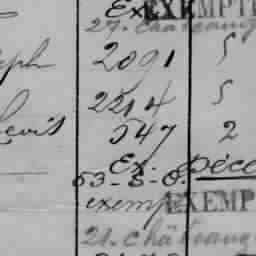 Ex. EXEMPT
27. Chateaug
eph 2091 5
2214 5
Levis 547 2
Ex. Déce
53-S-O.
exemp EXEMP
21. Château